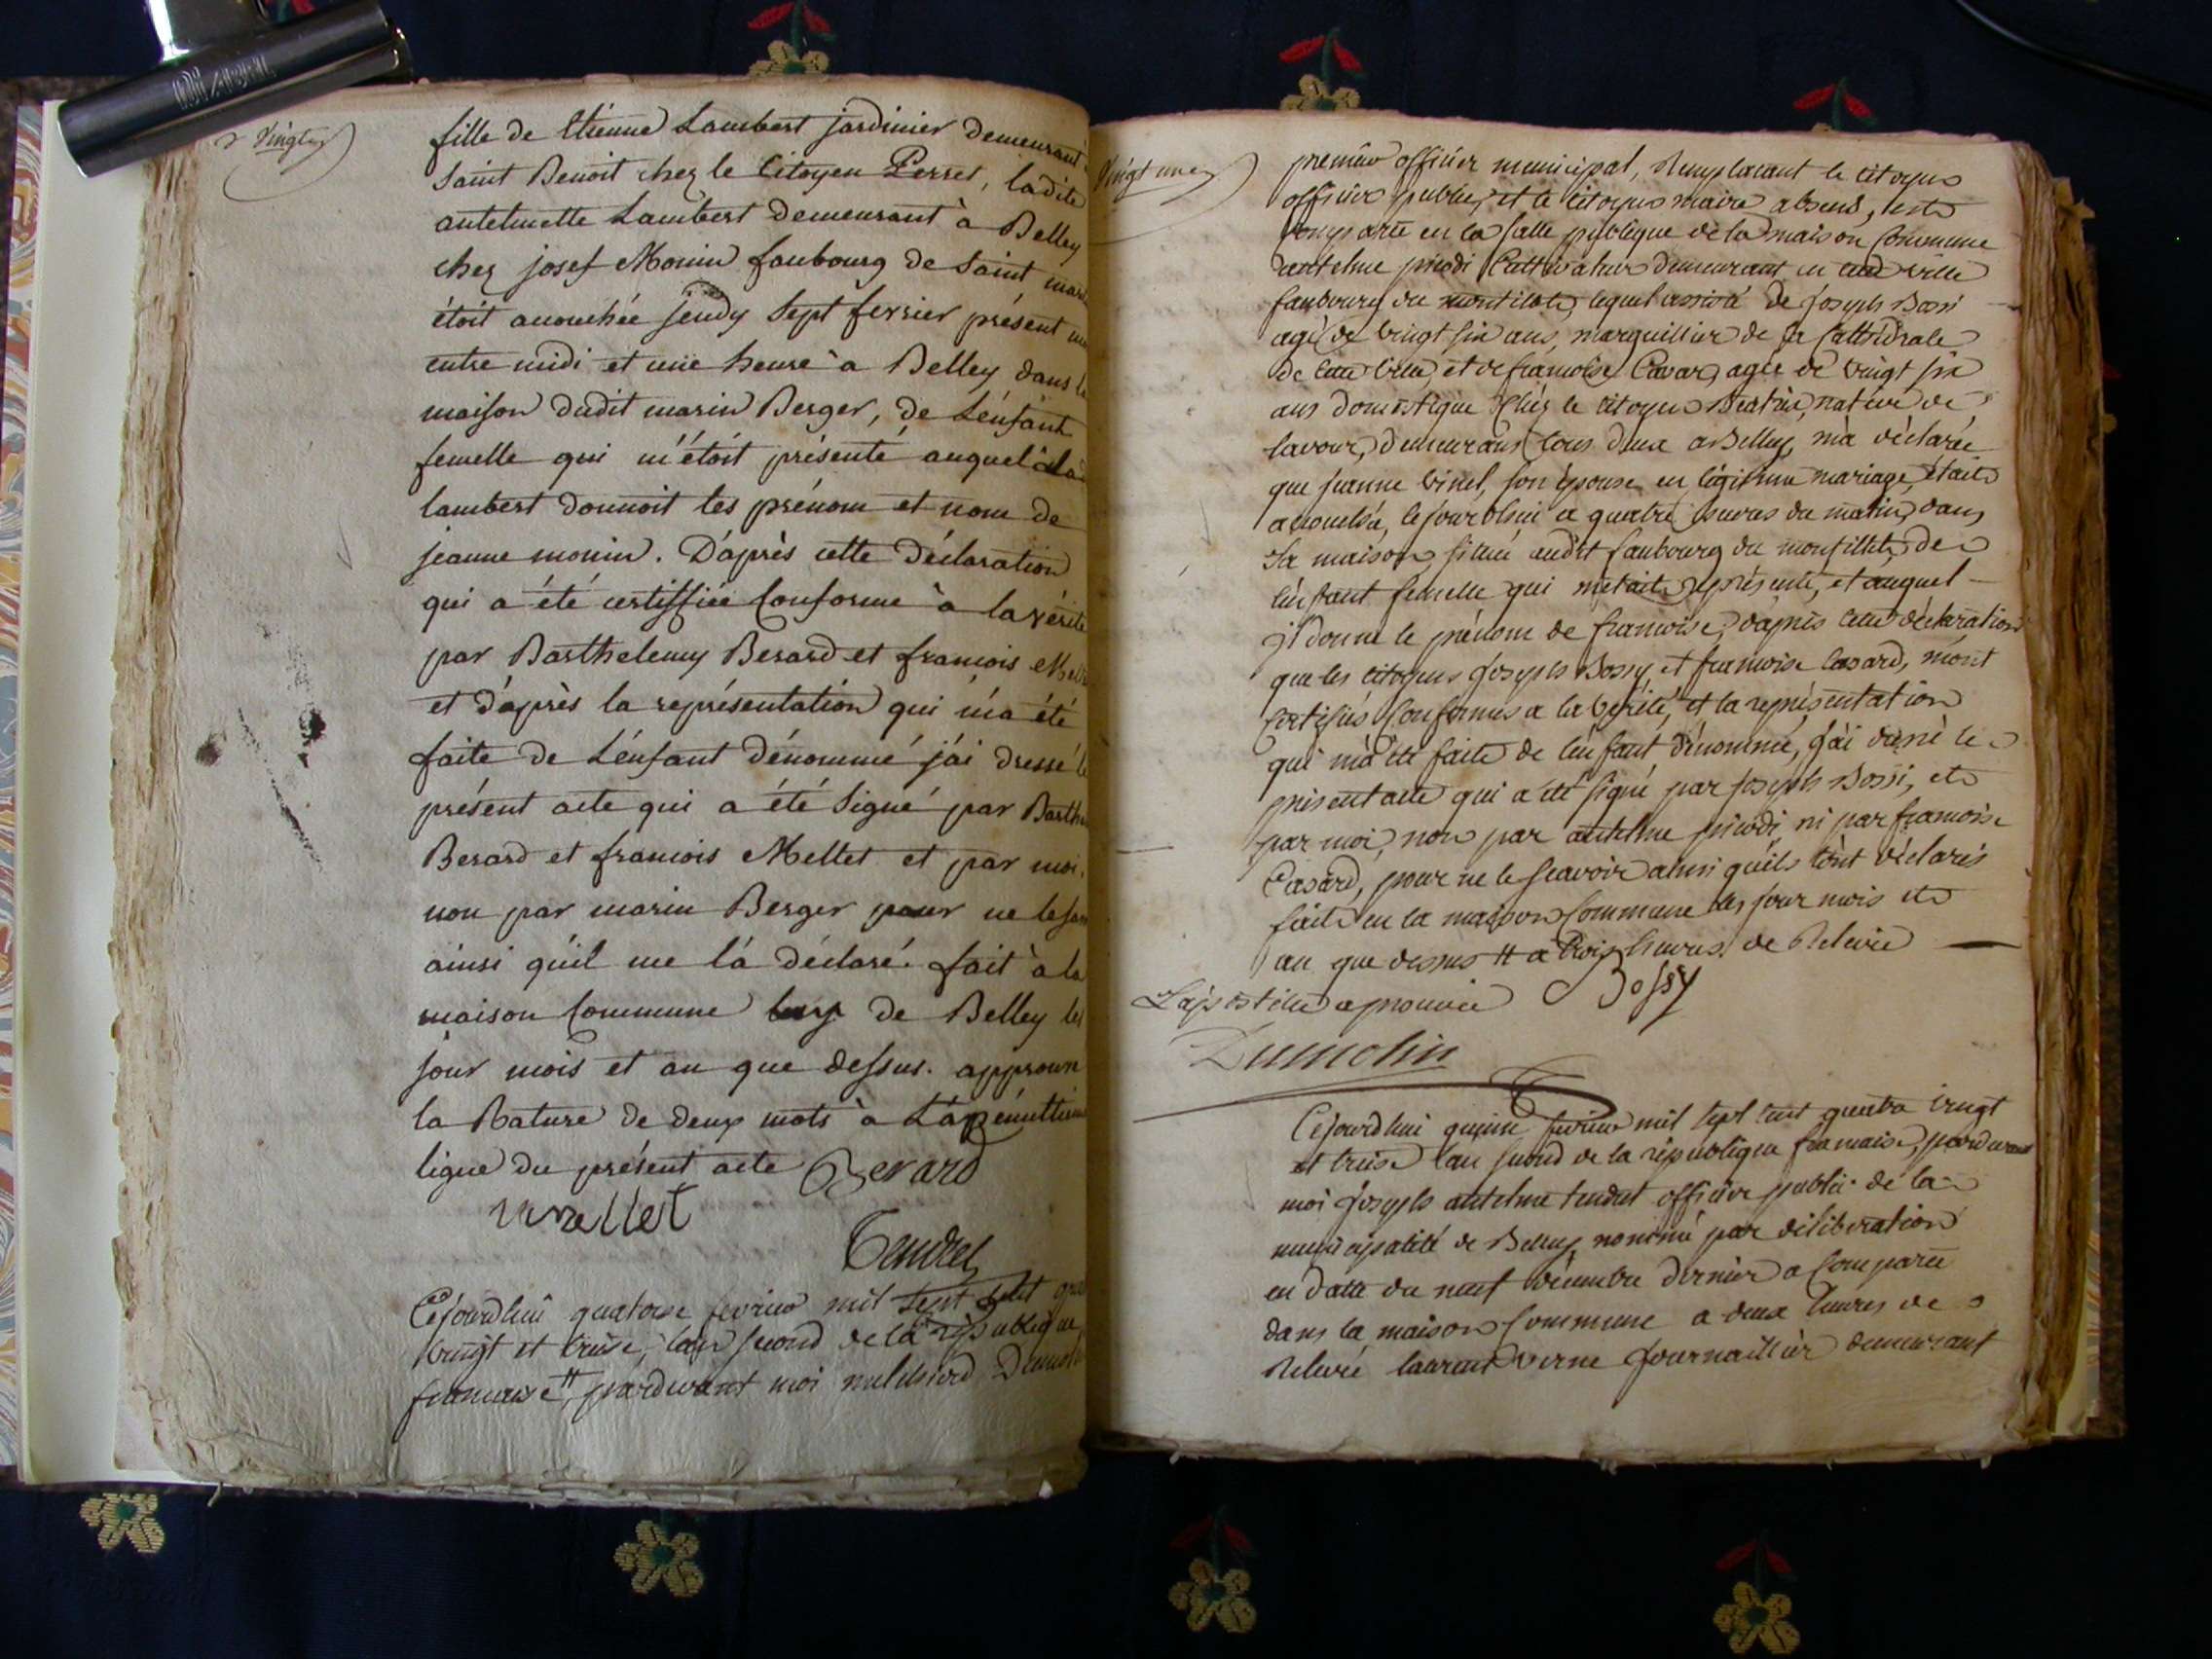 Vingt
fille de Etienne Lambert jardinier demeurant
Saint Benoit chez le Citoyen Perret, ladite
antelmette Lambert demeurant à Belley
chez josef Monin faubourg de Saint
étoit acouchée jeudy Sept fevrier présent
entre midi et une heure à Belley dans
maison dudit marin Berger, de L'enfant
femelle qui m'étoit présenté auquel
lambert donnoit les prénom et nom de
jeanne monin. D'après cette Déclaration
qui a été certiffiée Conforme à la vérité
par Barthelemy Berard et francois
et d'après la représentation qui m'a été
faite de L'enfant dénommé j'ai dressé
présent acte qui a été Signé par
Berard et francois Mellet et par moi,
non par marin Berger pour ne
ainsi qu'il me l'a déclaré. fait à la
maison Commune de Belley les
jour mois et an que dessus. approuv
la Rature de deux mots à L'a
ligne du présent acte Berard
Mellet
Tendret
Cejourdhui quatorze fevrier mil Sept
vingt et treize, l'an second de la république
francaise, pardevant moi melchiord
Vingt une
premier officier municipal, Remplacant le citoyen
officier public, et le citoyen maire absend, est
comparu en la salle publique de la maison Commune
antelme Cultivateur demeurant en ville
faubourg du montilliet, lequel assisté de Joseph Bossi
agé de vingt six ans, marguillier de la Cathédrale
de cette ville, et de francoise Cavard, agée de vingt six
ans domestique chez le citoyen native de
lavour, demeurans tous deux a Belley, m'a déclarée
que jeanne vinet, son épouse en légitime mariage, était
acouchée, le jourdhui a quatre heures du matin, dans
Sa maison, située audit faubourg du montilliet, de
l'enfant femelle qui m'était représenté, et auquel
jl donne le prénom de francoise, d'après cette déclaration
que les citoyens Joseph Bossy et francoise Casard, m'ont
certifiés Conformes a la vérité, et la représentation
qui m'a été faite de l'enfant dénommé, j'ai le
présent acte qui a été signé par joseph Bossi, et
par moi, non par antelme ni par francoise
Casard, pour ne le scavoir ainsi qu'ils l'ont déclarés
fait en la maison Commune les jour mois et
an que dessus # a trois heures de Relevée
L'apostille aprouvée Bossy
Dumolin
Cejourdhui quinze fevrier mil sept cent quatre vingt
et treize l'an second de la république francaise, pardevant
moi Joseph antelme tendret officier public de la
municipalité de Belley, nommé par délibération
en datte du neuf décembre dernier a Comparu
dans la maison Commune a deux heures de
Relevée laurent verne journaillier demeurant